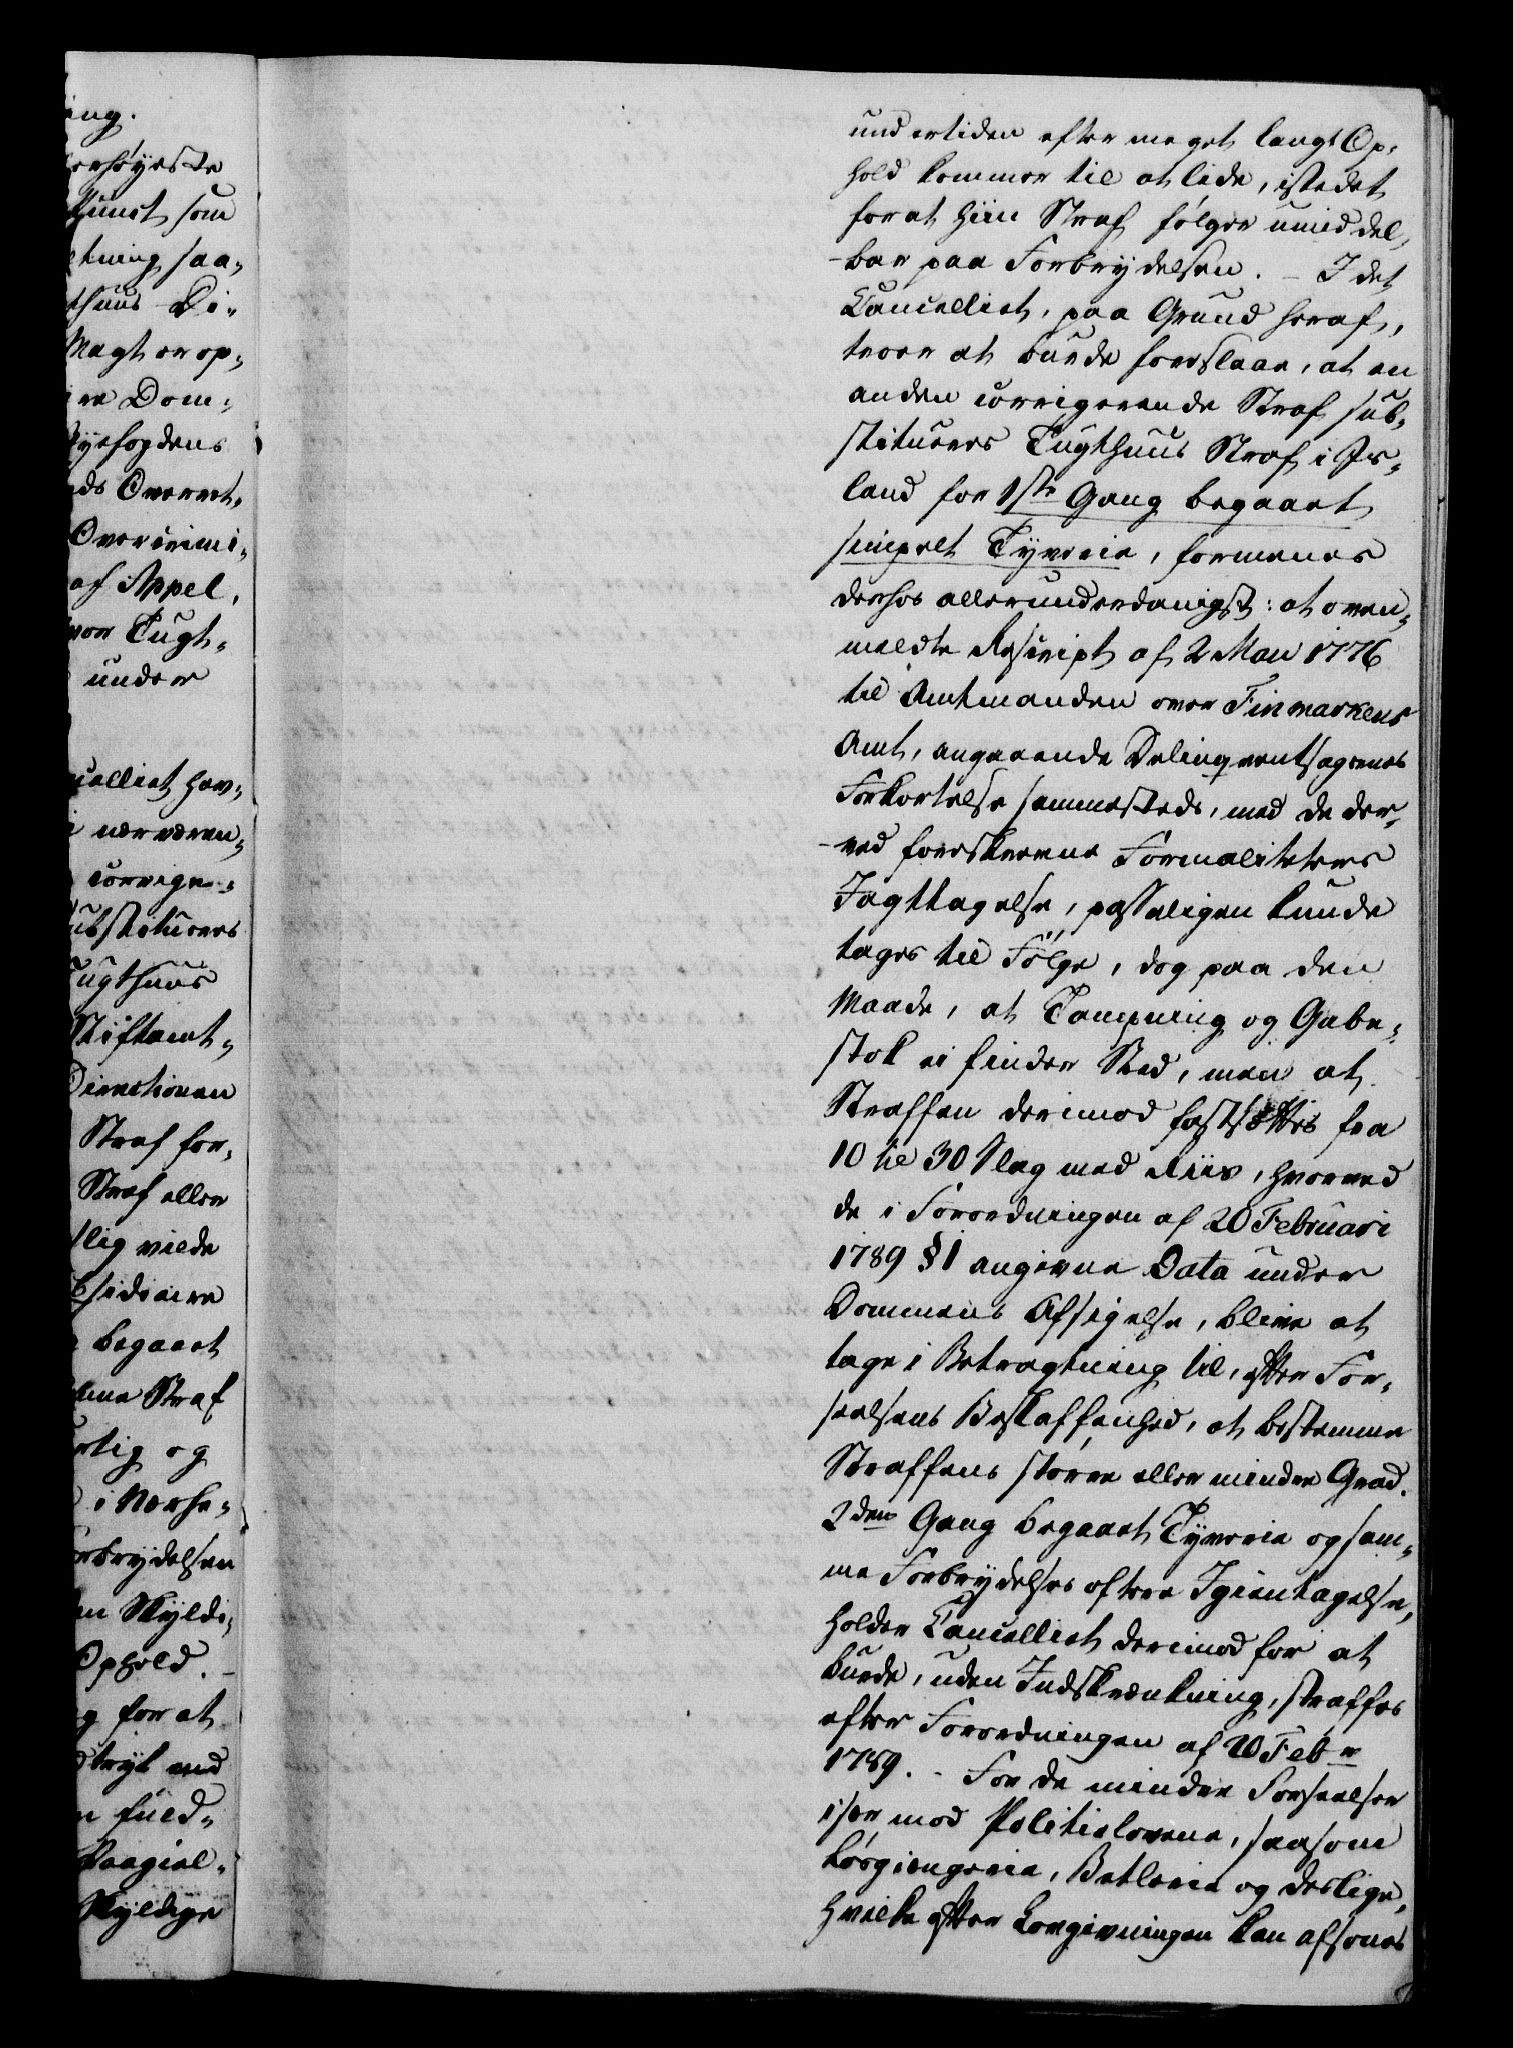 ing.
lerhøyeste
kunst som
etning saa-
gthuus Di-
Magt er op-
ire Dom-
Byefogdens
nds Overret-
Overcrimi-
af Appel,
vor Tugt-
under
ncelliet hav-
i nærværen-
corrige-
substitueres
Tugthuus
Stiftamt-
Directionen
Straf for-
Straf eller
slig vilde
bsidiaire
begaaet
Straf
rtig og
i Nærhe-
orbrydelsen
en Skyldi-
Ophold. -
g for at
dtryk med
n fuld-
Paagiel-
Skyldige
undertiden efter meget langt Op-
hold kommer til at lide, istedet
for at hiin Straf følger umiddel-
-bar paa Forbrydelsen. - I det
Cancelliet, paa Grund heraf,
troer at burde foreslaae, at en
anden corrigerende Straf sub-
stitueres Tugthuus Straf i Is-
land for 1ste Gang begaaet
simpelt Tyverie, formenes
derhos allerunderdanigst: at oven-
meldte Rescript af 2 Mai 1776
til Amtmanden over Finmarkens
Amt, angaaende Delinqventsagernes
Forkortelse sammesteds, med de der-
-ved foreskrevne Formaliteters
Iagttagelse, passeligen kunde
tages til Følge, dog paa den
Maade, at Tampning og Gabe-
stok ei finder Sted, men at
Straffen derimod fastsættes fra
10 til 30 Slag med Riis, hvorved
de i Forordningen af 20 Februari
1789 § 1 angivne Data under
Dommens Afsigelse, blive at
tage i Betragtning til, efter For-
seelsens Beskaffenhed, at bestemme
Straffens større eller mindre Grad.
2den Gang begaaet Tyverie og sam-
me Forbrydelses oftere Igientagelse,
holder Cancelliet derimod for at
burde, uden Indskrænkning, straffes
efter Forordningen af 20 Febr
1789. - For de mindre Forseelser
især mod Politielovene, saasom
Løsgiængerie, Betlerie og deslige,
hvilke efter Lovgivningen kan afsones